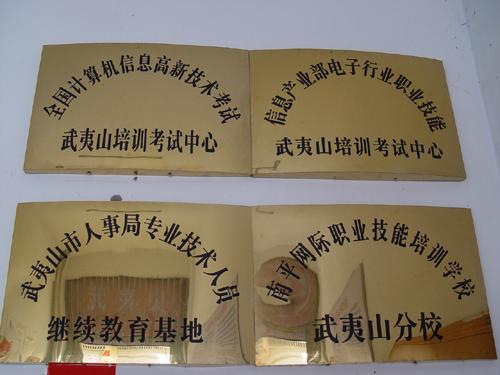 全国计算机信息高新技术考试
武夷山培训考试中心
信息产业部电子行业职业技能
武夷山培训考试中心
武夷山市人事局专业技术人员
继续教育基地
南平网际职业技能培训学校
武夷山分校